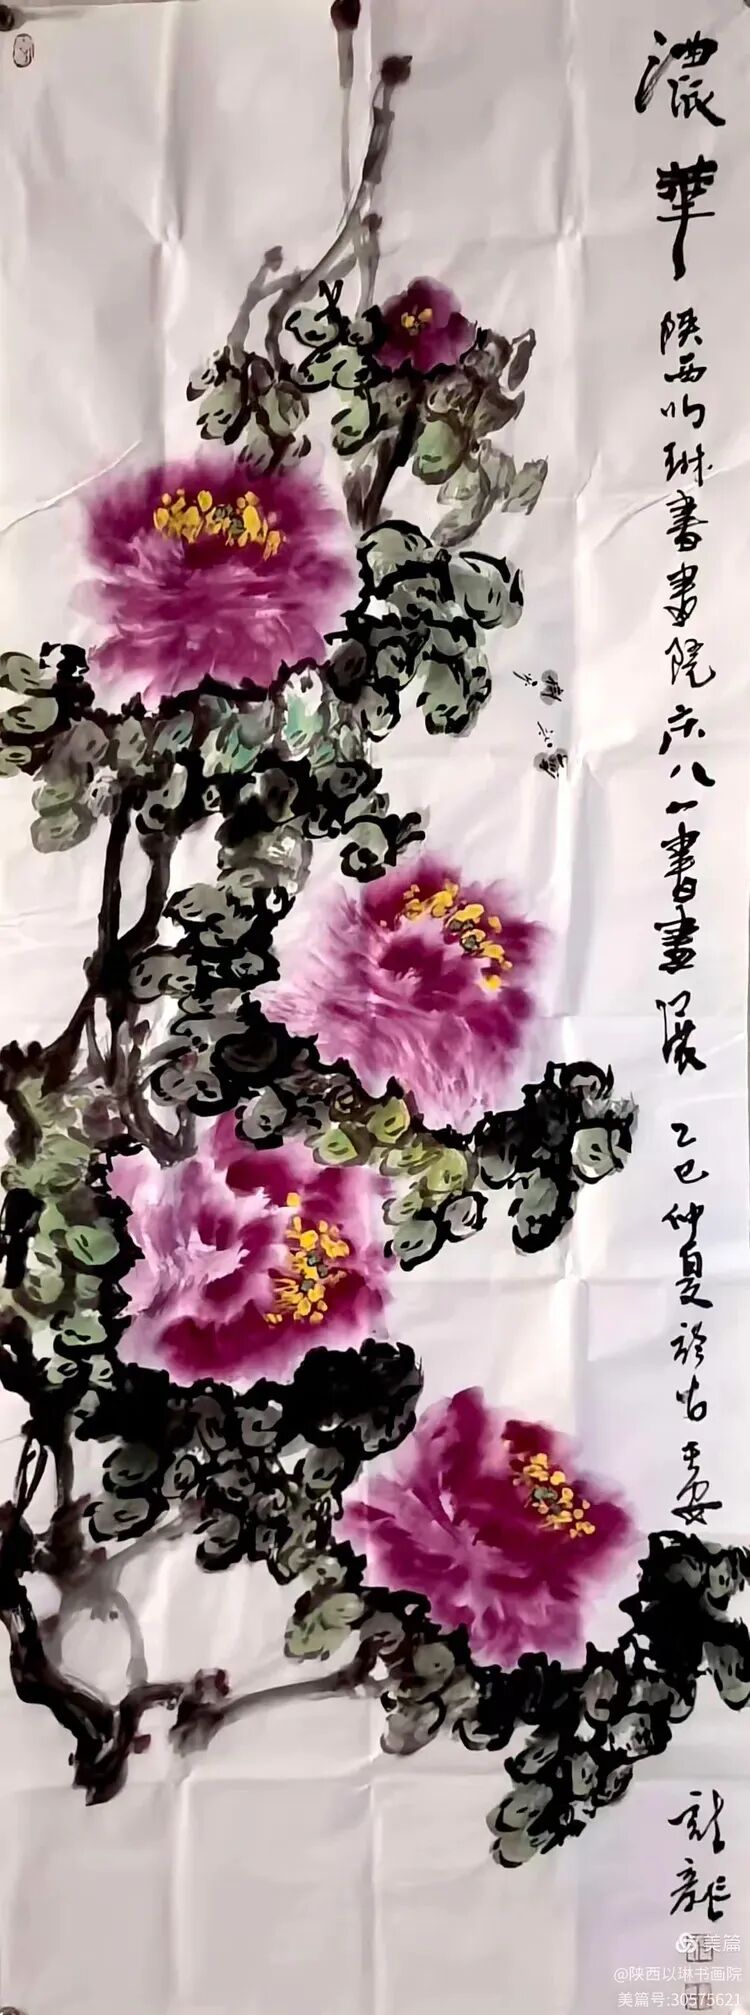 濃華
陕西以琳書畫院庆八一書畫展 乙巳仲夏於古長安
美篇
@陕西以琳书画院
美篇号:30575621